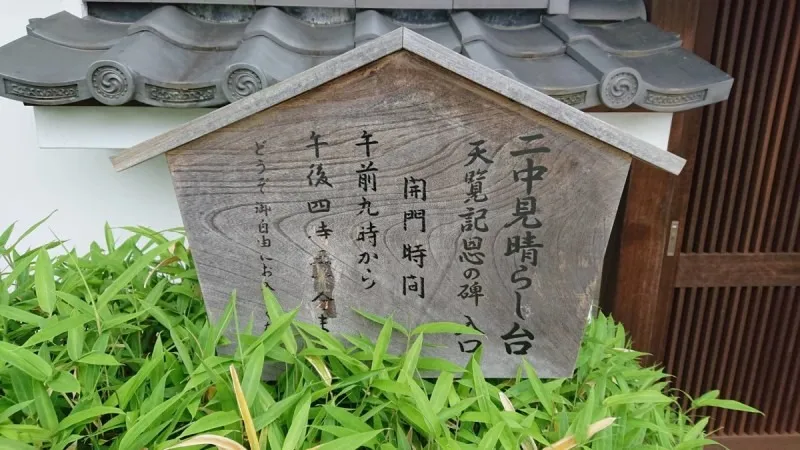 二中見晴らし台
天覧記恩の碑 入口
開門時間
午前九時から
午後四時
どうぞ御自由にお